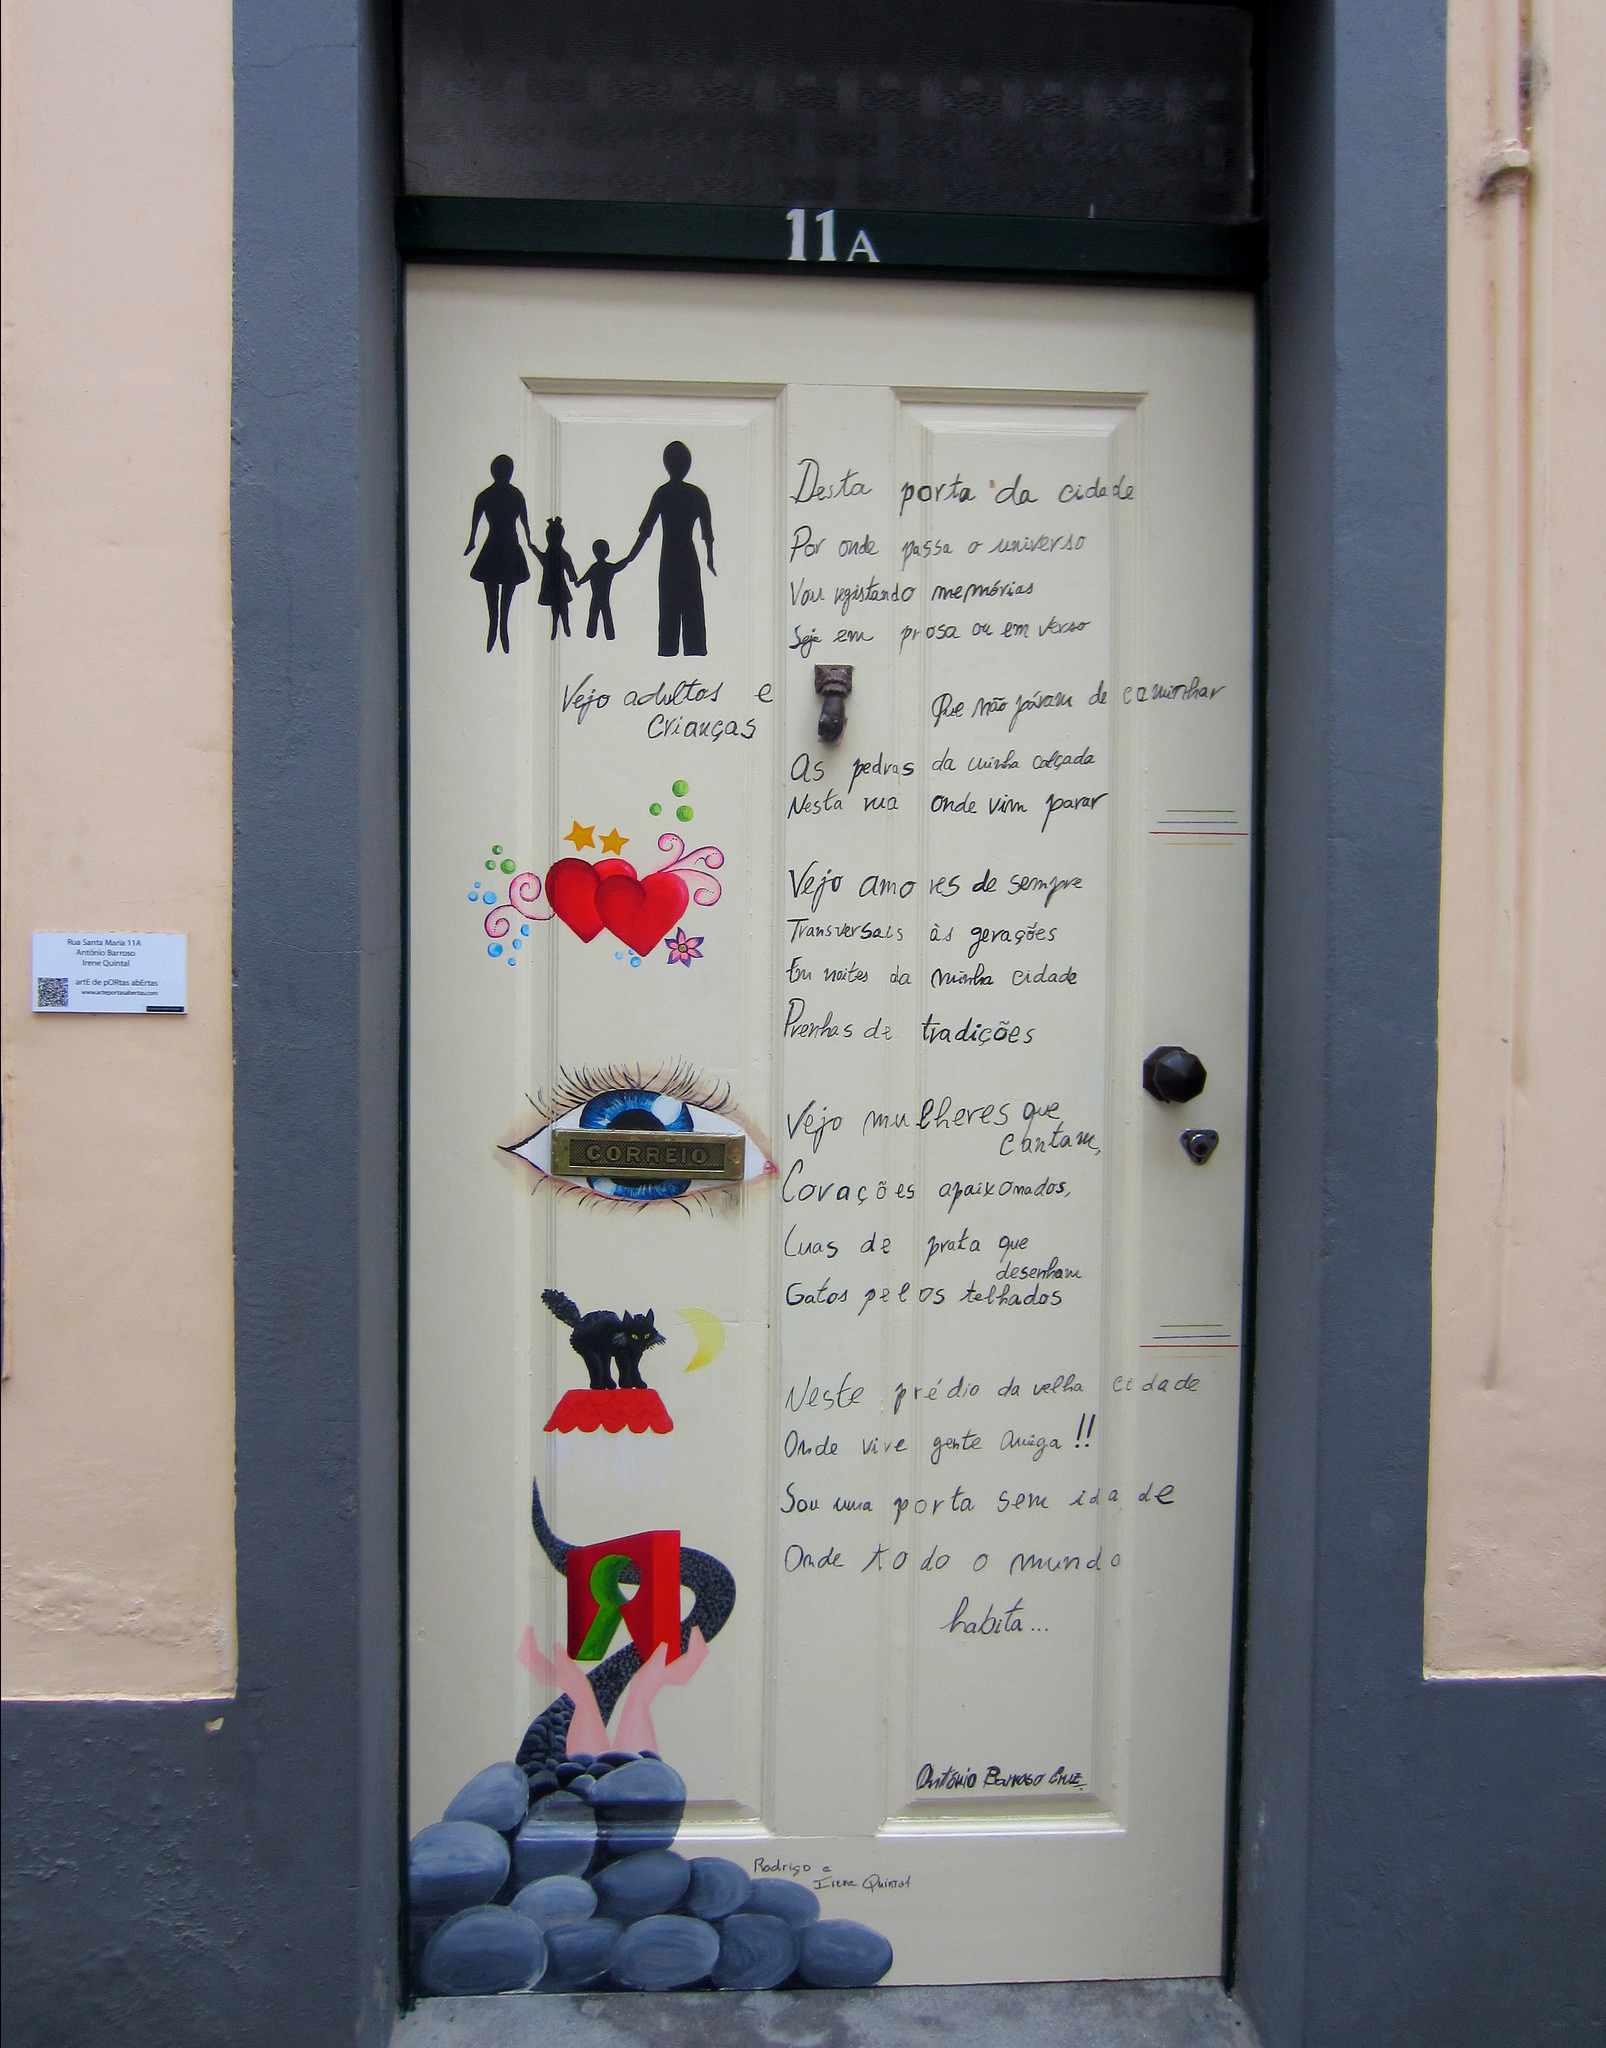 11A
Desta porta da cidade
Por onde passa o universo
Vou registando memórias
Seja em prosa ou em verso
Vejo adultos e
Crianças
Que não páram de caminhar
As pedras da minha calçada
Nesta rua onde vim parar
Vejo amores de sempre
Transversais às gerações
Em noites da minha cidade
Prenhas de tradições
Vejo mulheres que
cantam,
Corações apaixonados,
Luas de prata que
desenham
Gatos pelos telhados
Neste prédio da velha cidade
Onde vive gente amiga!!
Sou uma porta sem idade
Onde todo o mundo
habita...
António Barroso Cruz
Rodrigo e
Irene Quintal
CORREIO
Rua Santa Maria 11A
António Barroso
Irene Quintal
artE de pORtas abErtas
www.arteportasabertas.com